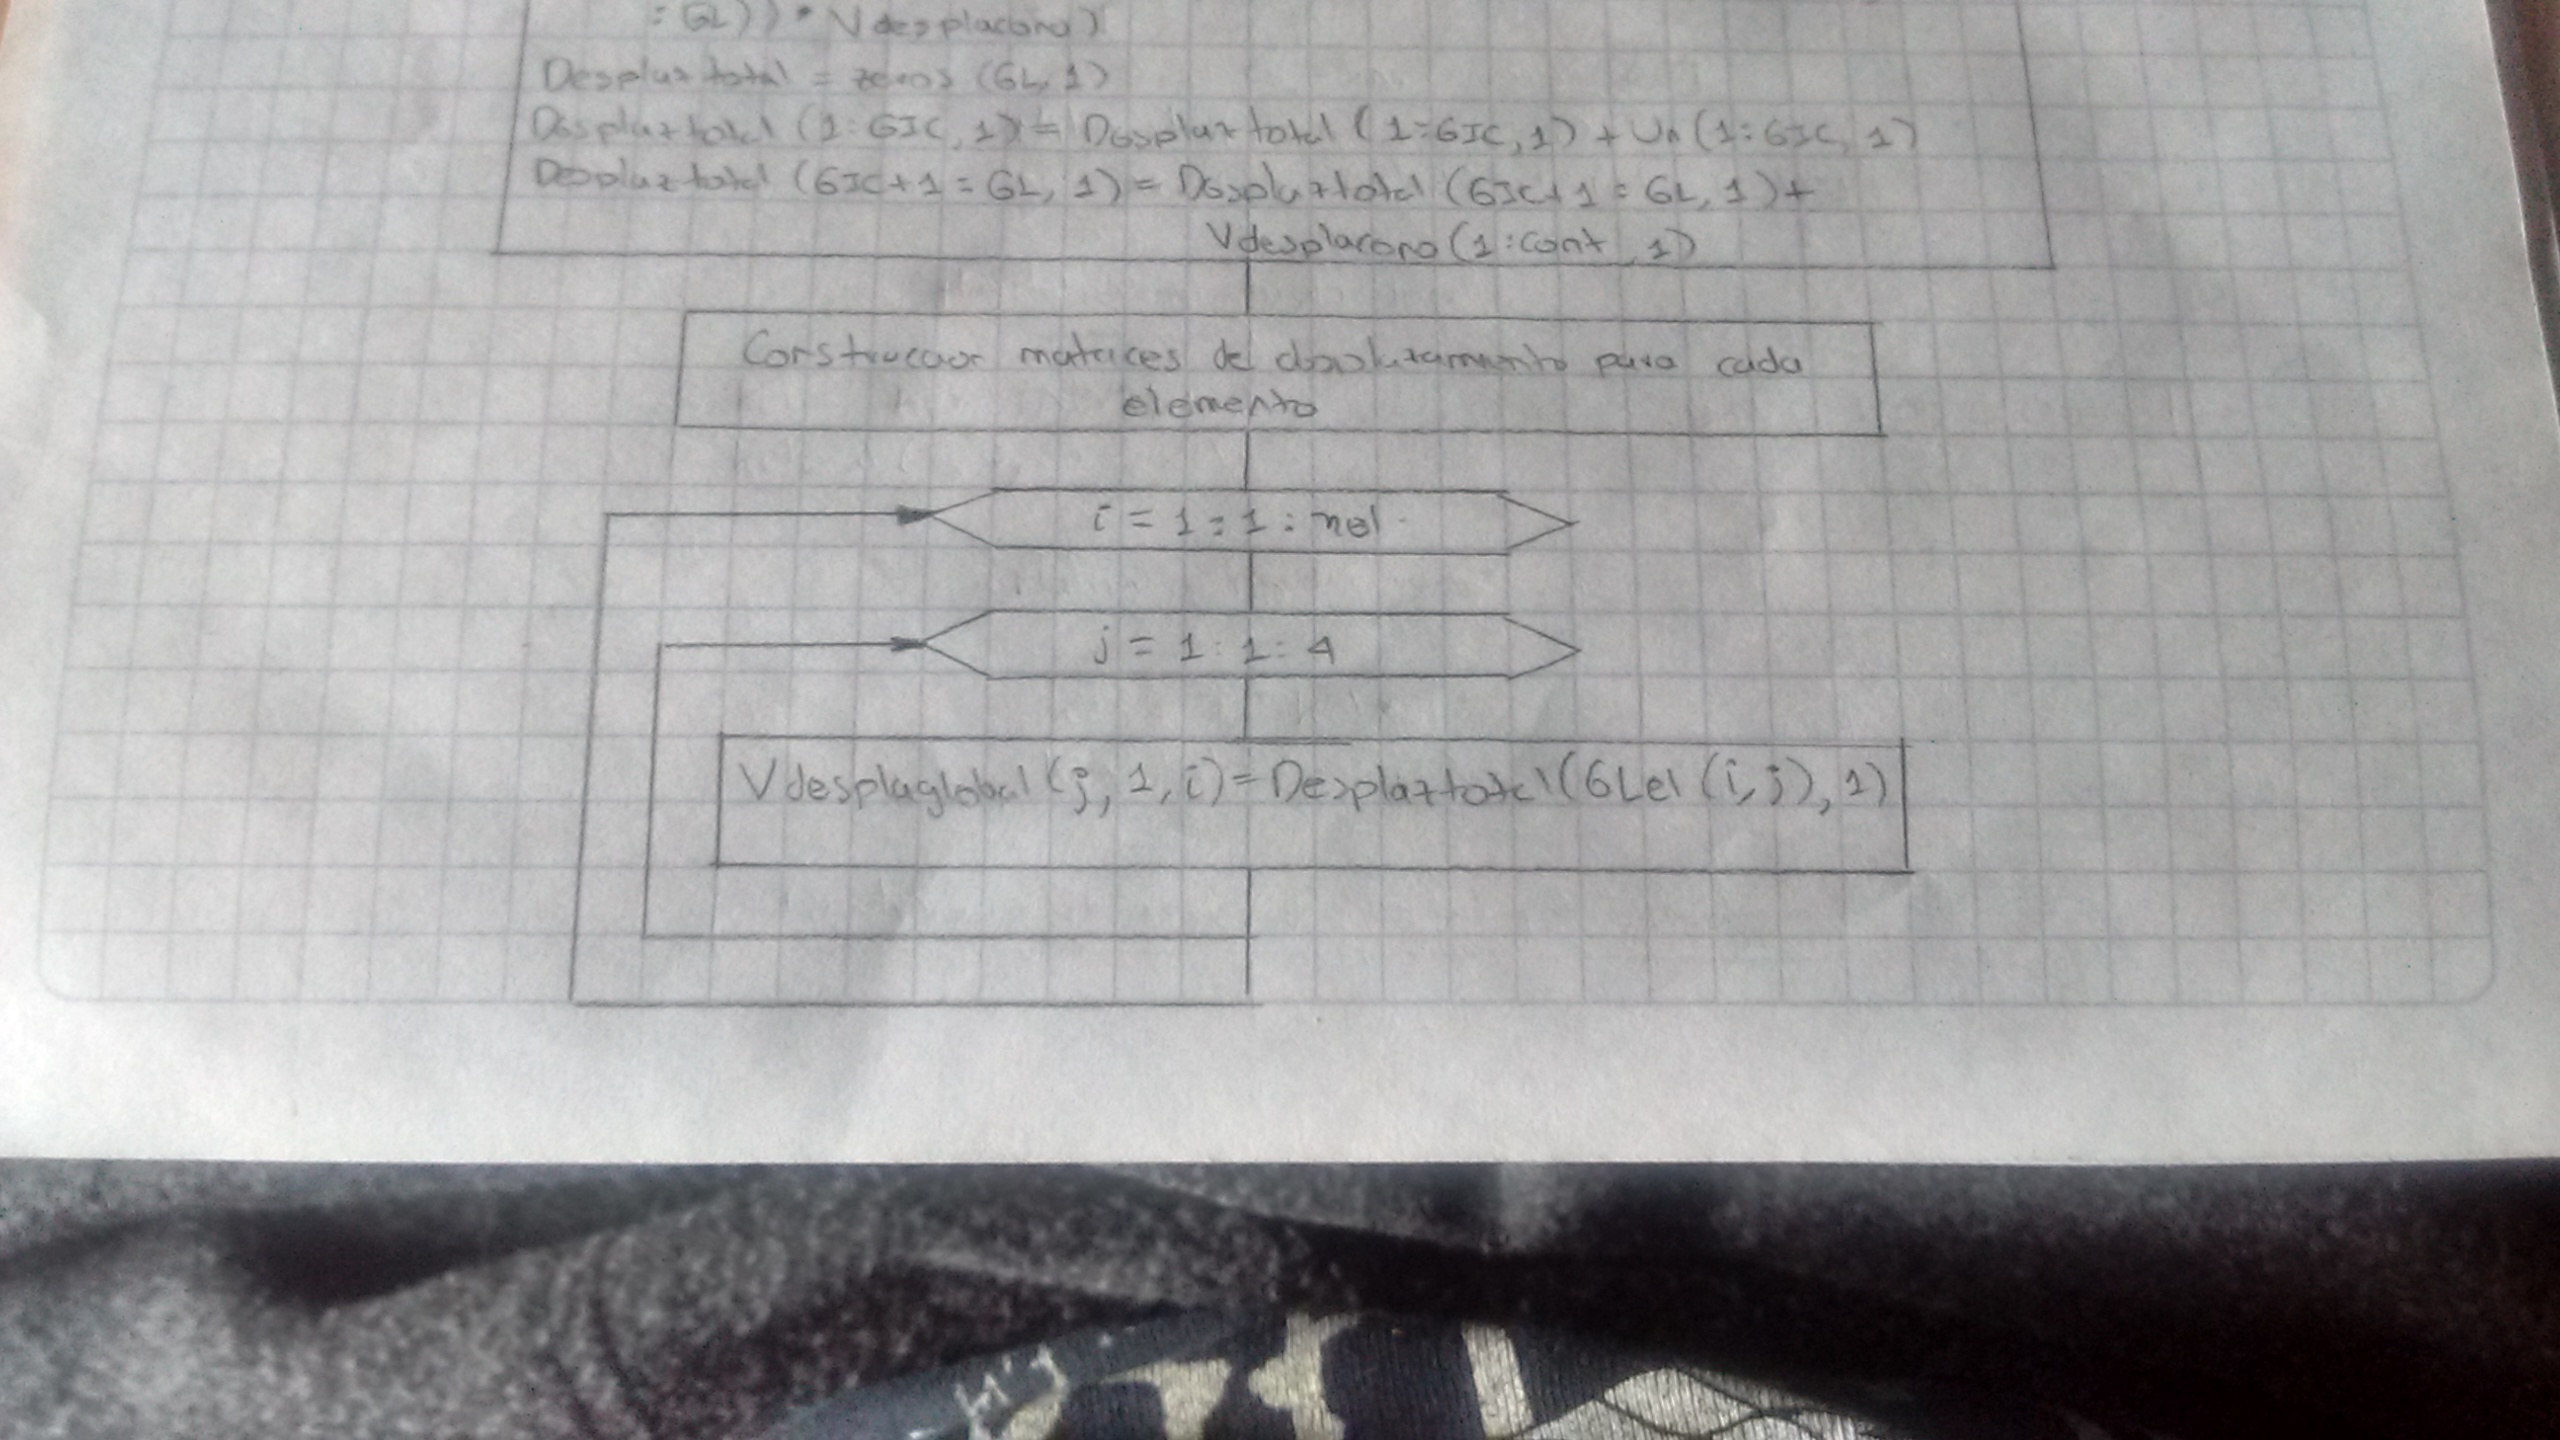 : GL)) * Vdesplacono)
Desplaztotal = zeros (GL, 1)
Desplaztotal (1:GIC, 1) = Desplaztotal (1:GIC, 1) + Un (1:GIC, 1)
Desplaztotal (GIC+1 : GL, 1) = Desplaztotal (GIC+1 : GL, 1) +
Vdesplacono (1:cont, 1)
Construccion matrices de desplazamiento para cada
elemento
i = 1 : 1 : nel
j = 1 : 1 : 4
Vdesplaglobal (j, 1, i) = Desplaztotal (GLel (i, j), 1)